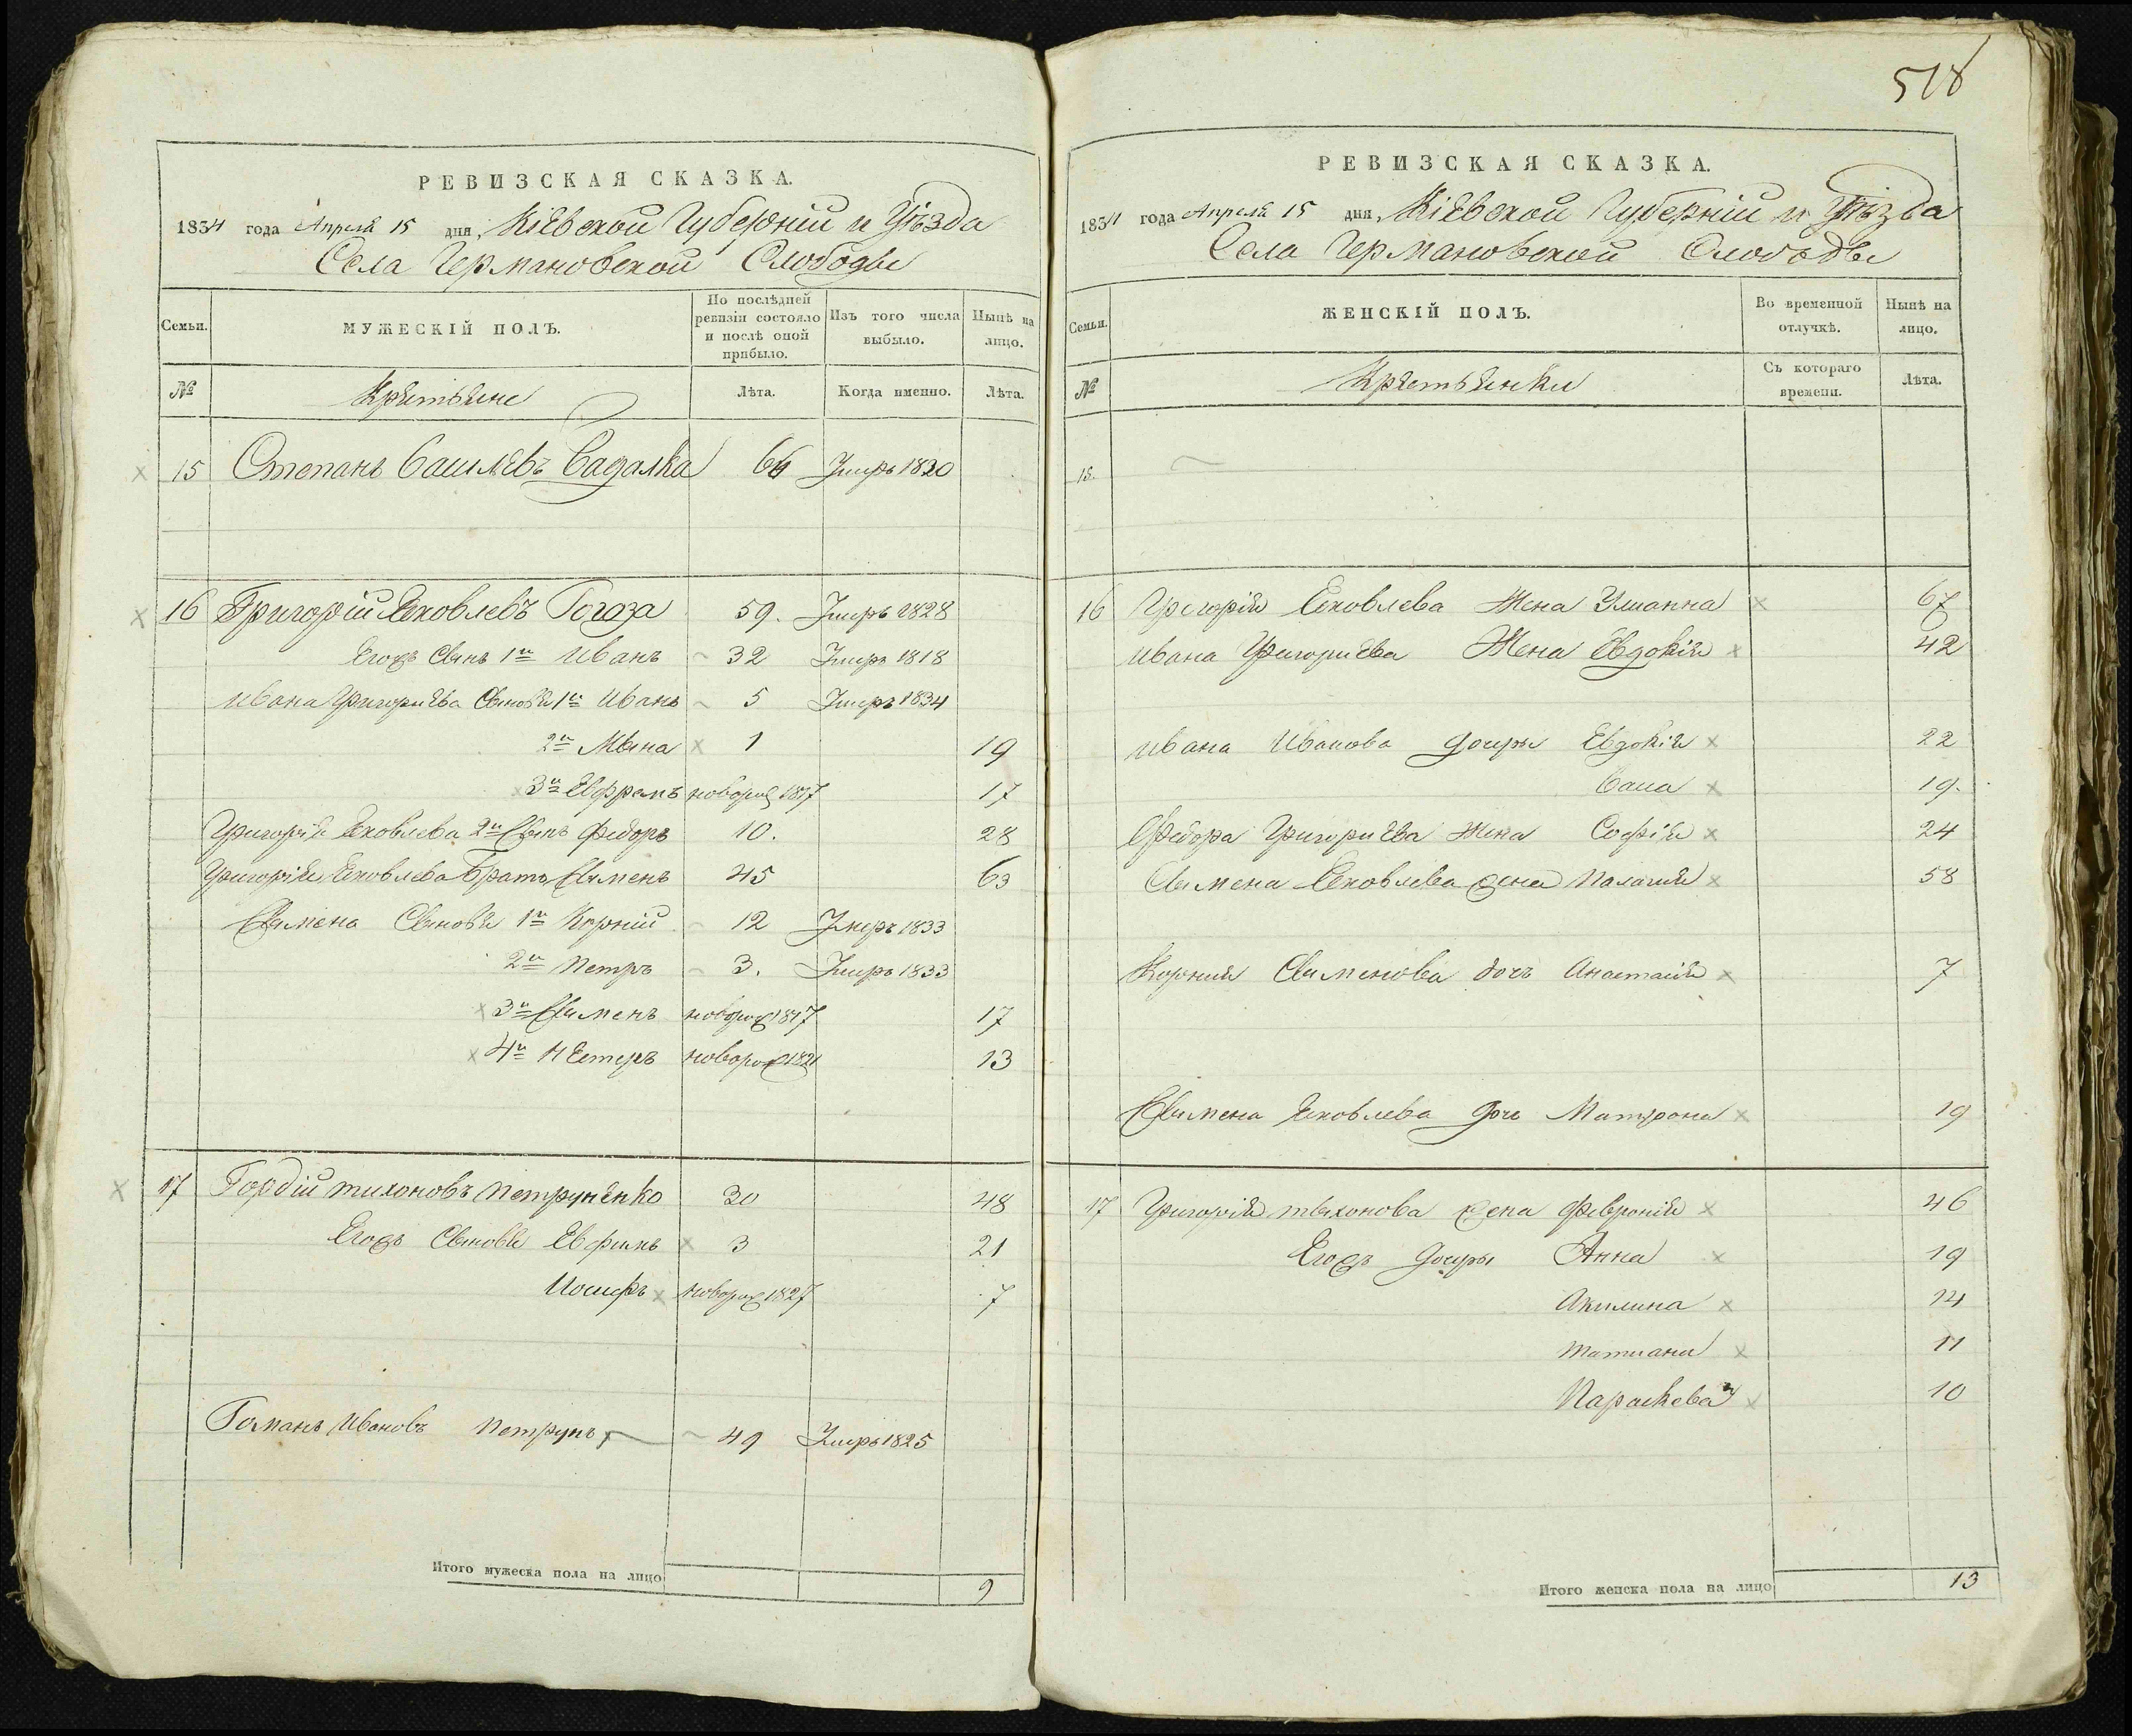 РЕВИЗСКАЯ СКАЗКА.
1834 года Апреля 15 дня, Кіевской Губерніи и Уѣзда
Села Германовской Слободы
Семьи. МУЖЕСКІЙ ПОЛЪ. По послѣдней ревизіи состояло и послѣ оной прибыло. Изъ того числа выбыло. Нынѣ на лицо.
№ Лѣта. Когда именно. Лѣта.
15 Степанъ 66 Умеръ 1820
16 Григорій Яковлевъ Гогоза 59. Умеръ 1828
Егожъ Сынъ 1й Иванъ 32 Умеръ 1818
Ивана Григориева Сыновя 1й Иванъ 5 Умеръ 1834
2й Мына 1 19
3й новорож 1817 17
Григорія Яковлева 2й Сынъ Федоръ 10. 28
Григорія Яковлева Братъ Сыменъ 45 63
Сымена Сыновя 1й Корній 12 Умеръ 1833
2й Петръ 3. Умеръ 1833
3й Сыменъ новорож 1817 17
4й Нестеръ новорож 1821 13
17 Гордій тихоновъ Петруненко 30 48
Егожъ Сыновя Евфимъ 3 21
Иосифъ новорож 1827 7
Ивановъ 49 Умеръ 1825
Итого мужеска пола на лицо 9
518
РЕВИЗСКАЯ СКАЗКА.
1834 года Апреля 15 дня, Кіевской Губерніи и Уѣзда
Села Германовской Слободы
Семьи. ЖЕНСКІЙ ПОЛЪ. Во временной отлучкѣ. Нынѣ на лицо.
№ Съ котораго времени. Лѣта.
15.
16 Григорія Яковлева Жена Улианна 67
Ивана Григориева Жена Евдокія 42
Ивана Иванова дочеры Евдокія 22
19.
Федора Григориева Жена Софія 24
Сымена Яковлева жена Палагия 58
Корния Сыменова дочъ Анастасія 7
Сымена Яковлева дочь Матрона 19
17 Григорія тыхонова жена Февронія 46
Егожъ дочеры Анна 19
Акилина 14
татиана 11
Параскева 10
Итого женска пола на лицо 13